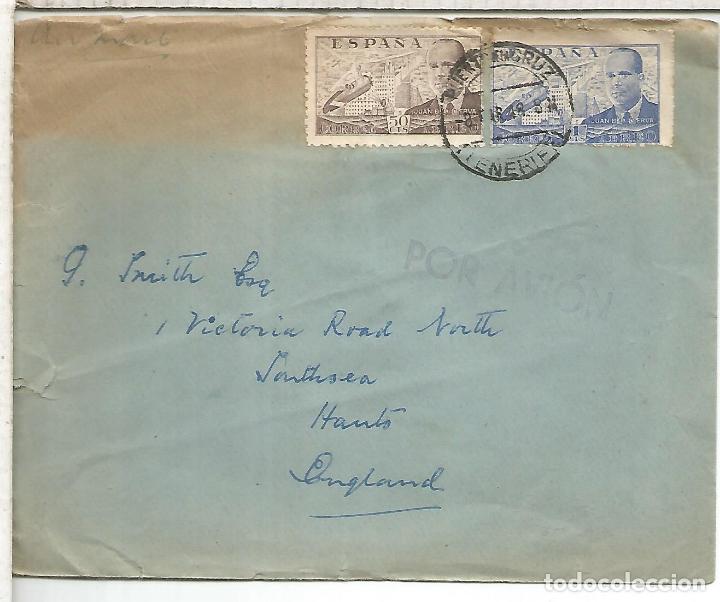 Air mail
ESPAÑA
50 CTS
JUAN DE LA CIERVA
CORREO AEREO
ESPAÑA
JUAN DE LA CIERVA
CORREO AEREO
CRUZ
TENERIFE
POR AVIÓN
G. Smith Esq
1 Victoria Road North
Southsea
Hants
England
todocoleccion.net